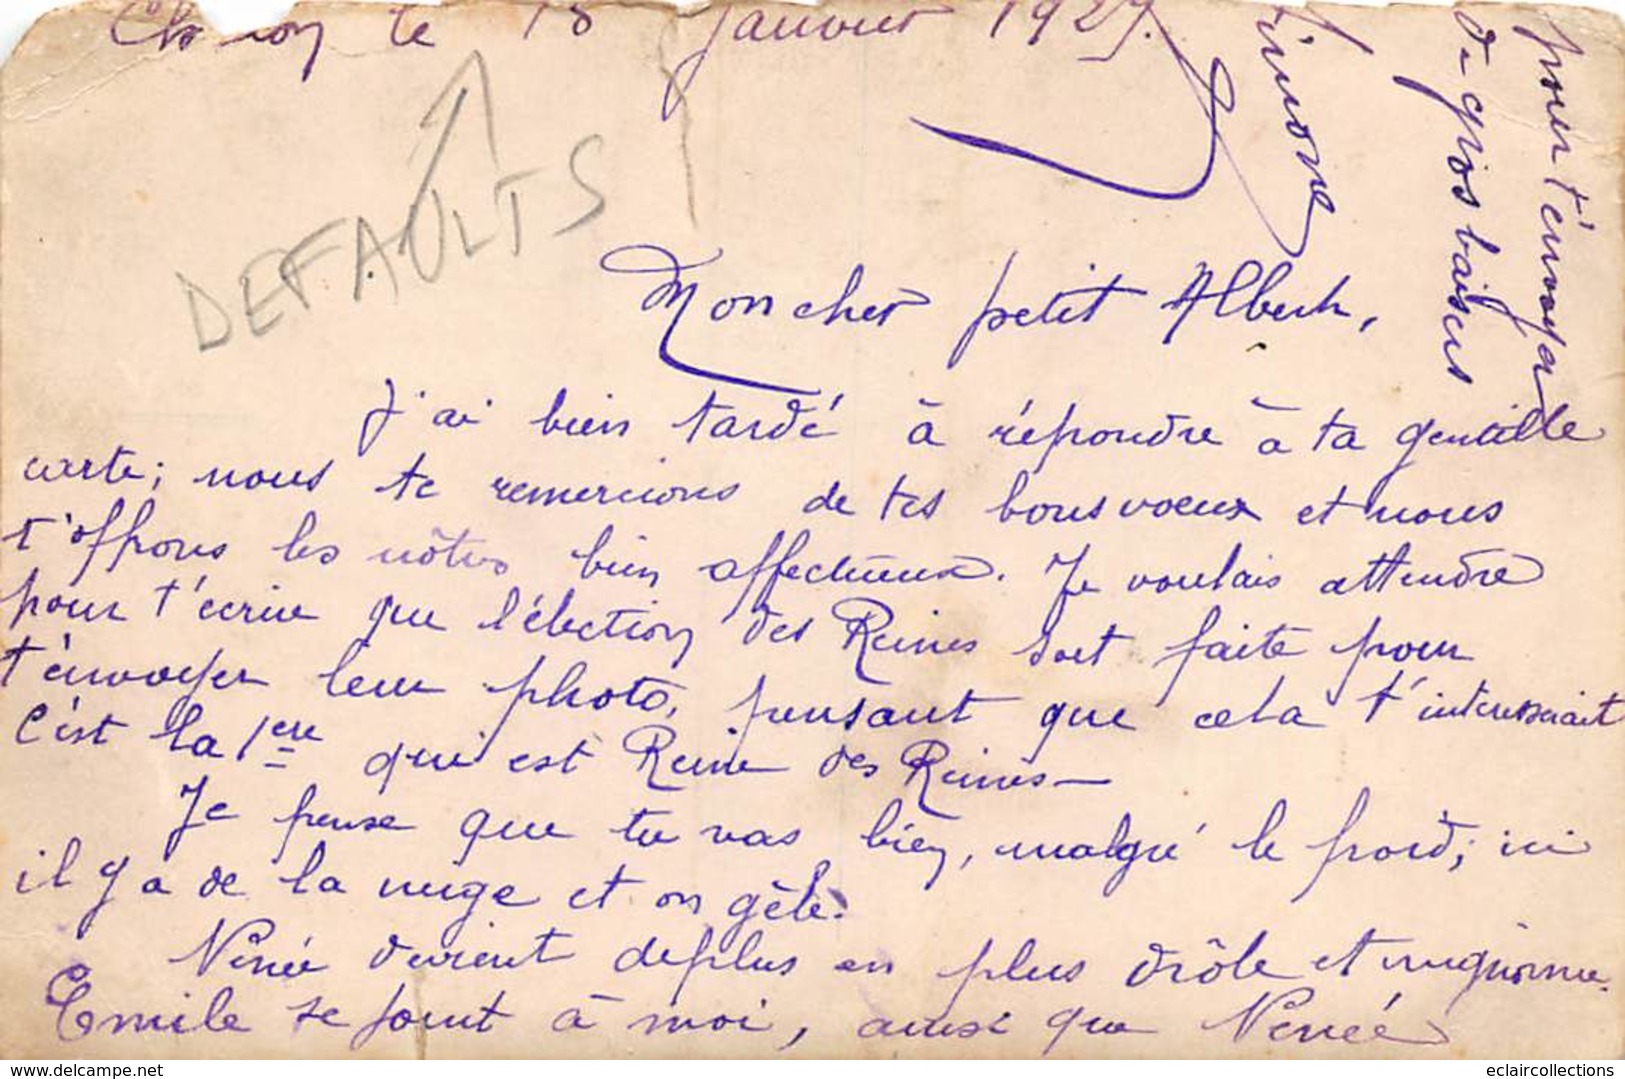 le 18 Janvier 1929.
DEFAULTS
Mon cher petit Albert,
J'ai bien tardé à répondre à ta gentille
carte; nous te remercions de tes bons voeux et nous
t'offrons les nôtres bien affectueux. Je voulais attendre
pour t'écrire que l'élection des Reines soit faite pour
t'envoyer leur photo, pensant que cela t'intéresserait
C'est la 1ère qui est Reine des Reines—
Je pense que tu vas bien, malgré le froid; ici
il y a de la neige et on gèle.
Nénée devient de plus en plus drôle et mignonne.
Emile se joint à moi, ainsi que Nénée
pour t'envoyer
de gros baisers
Simone
delcampe.net
eclaircollections